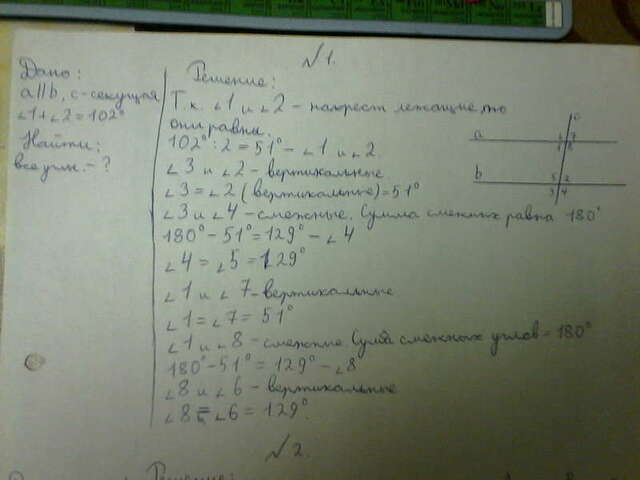 №1.
Дано:
a||b, c-секущая
∠1+∠2=102°
Найти:
все угл.-?
Решение:
Т.к. ∠1 и ∠2 - накрест лежащие, то
они равны.
102°:2=51°-∠1 и ∠2.
∠3 и ∠2 - вертикальные
∠3=∠2(вертикальные)=51°
∠3 и ∠4 - смежные. Сумма смежных равна 180°
180°-51°=129°-∠4
∠4=∠5=129°
∠1 и ∠7-вертикальные
∠1=∠7=51°
∠1 и ∠8 - смежные. Сумма смежных углов=180°
180°-51°=129°-∠8
∠8 и ∠6 - вертикальные
∠8=∠6=129°.
c
a
7
8
b
5 2
3 4
№2.
Решение: